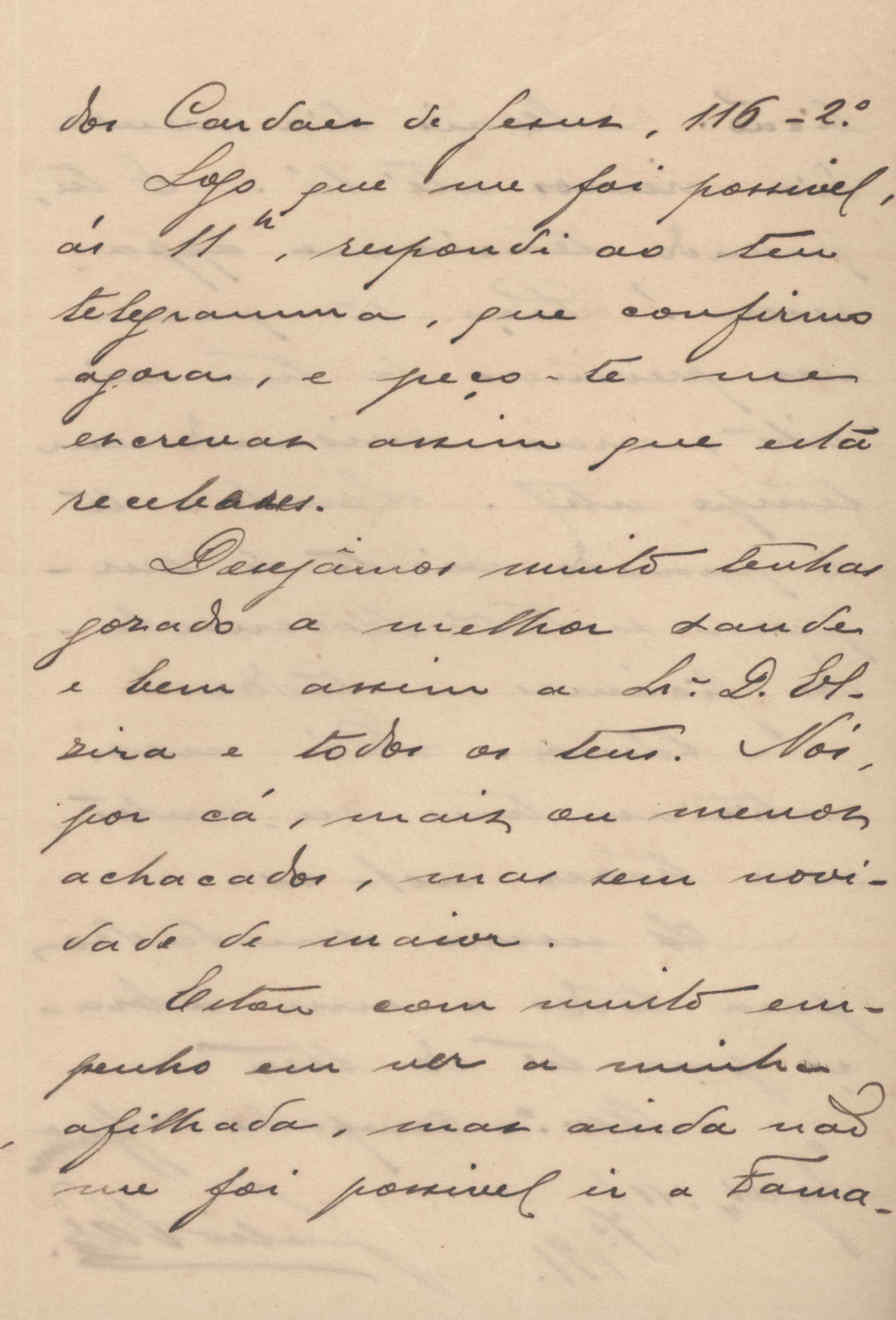 dos Cardaes de Jesus, 116-2.º
Logo que me foi possivel,
ás 11h, respondi ao teu
telegramma, que confirmo
agora, e peço-te me
escrevas assim que esta
recebas.
Desejâmos muito tenhas
gozado a melhor saude
e bem assim a Sr.ª D. El-
zira e todos os teus. Nós,
por cá, mais ou menos
achacados, mas sem novi-
dade de maior.
Estou com muito em-
penho em ver a minha
afilhada, mas ainda não
me foi possivel ir a Fama-